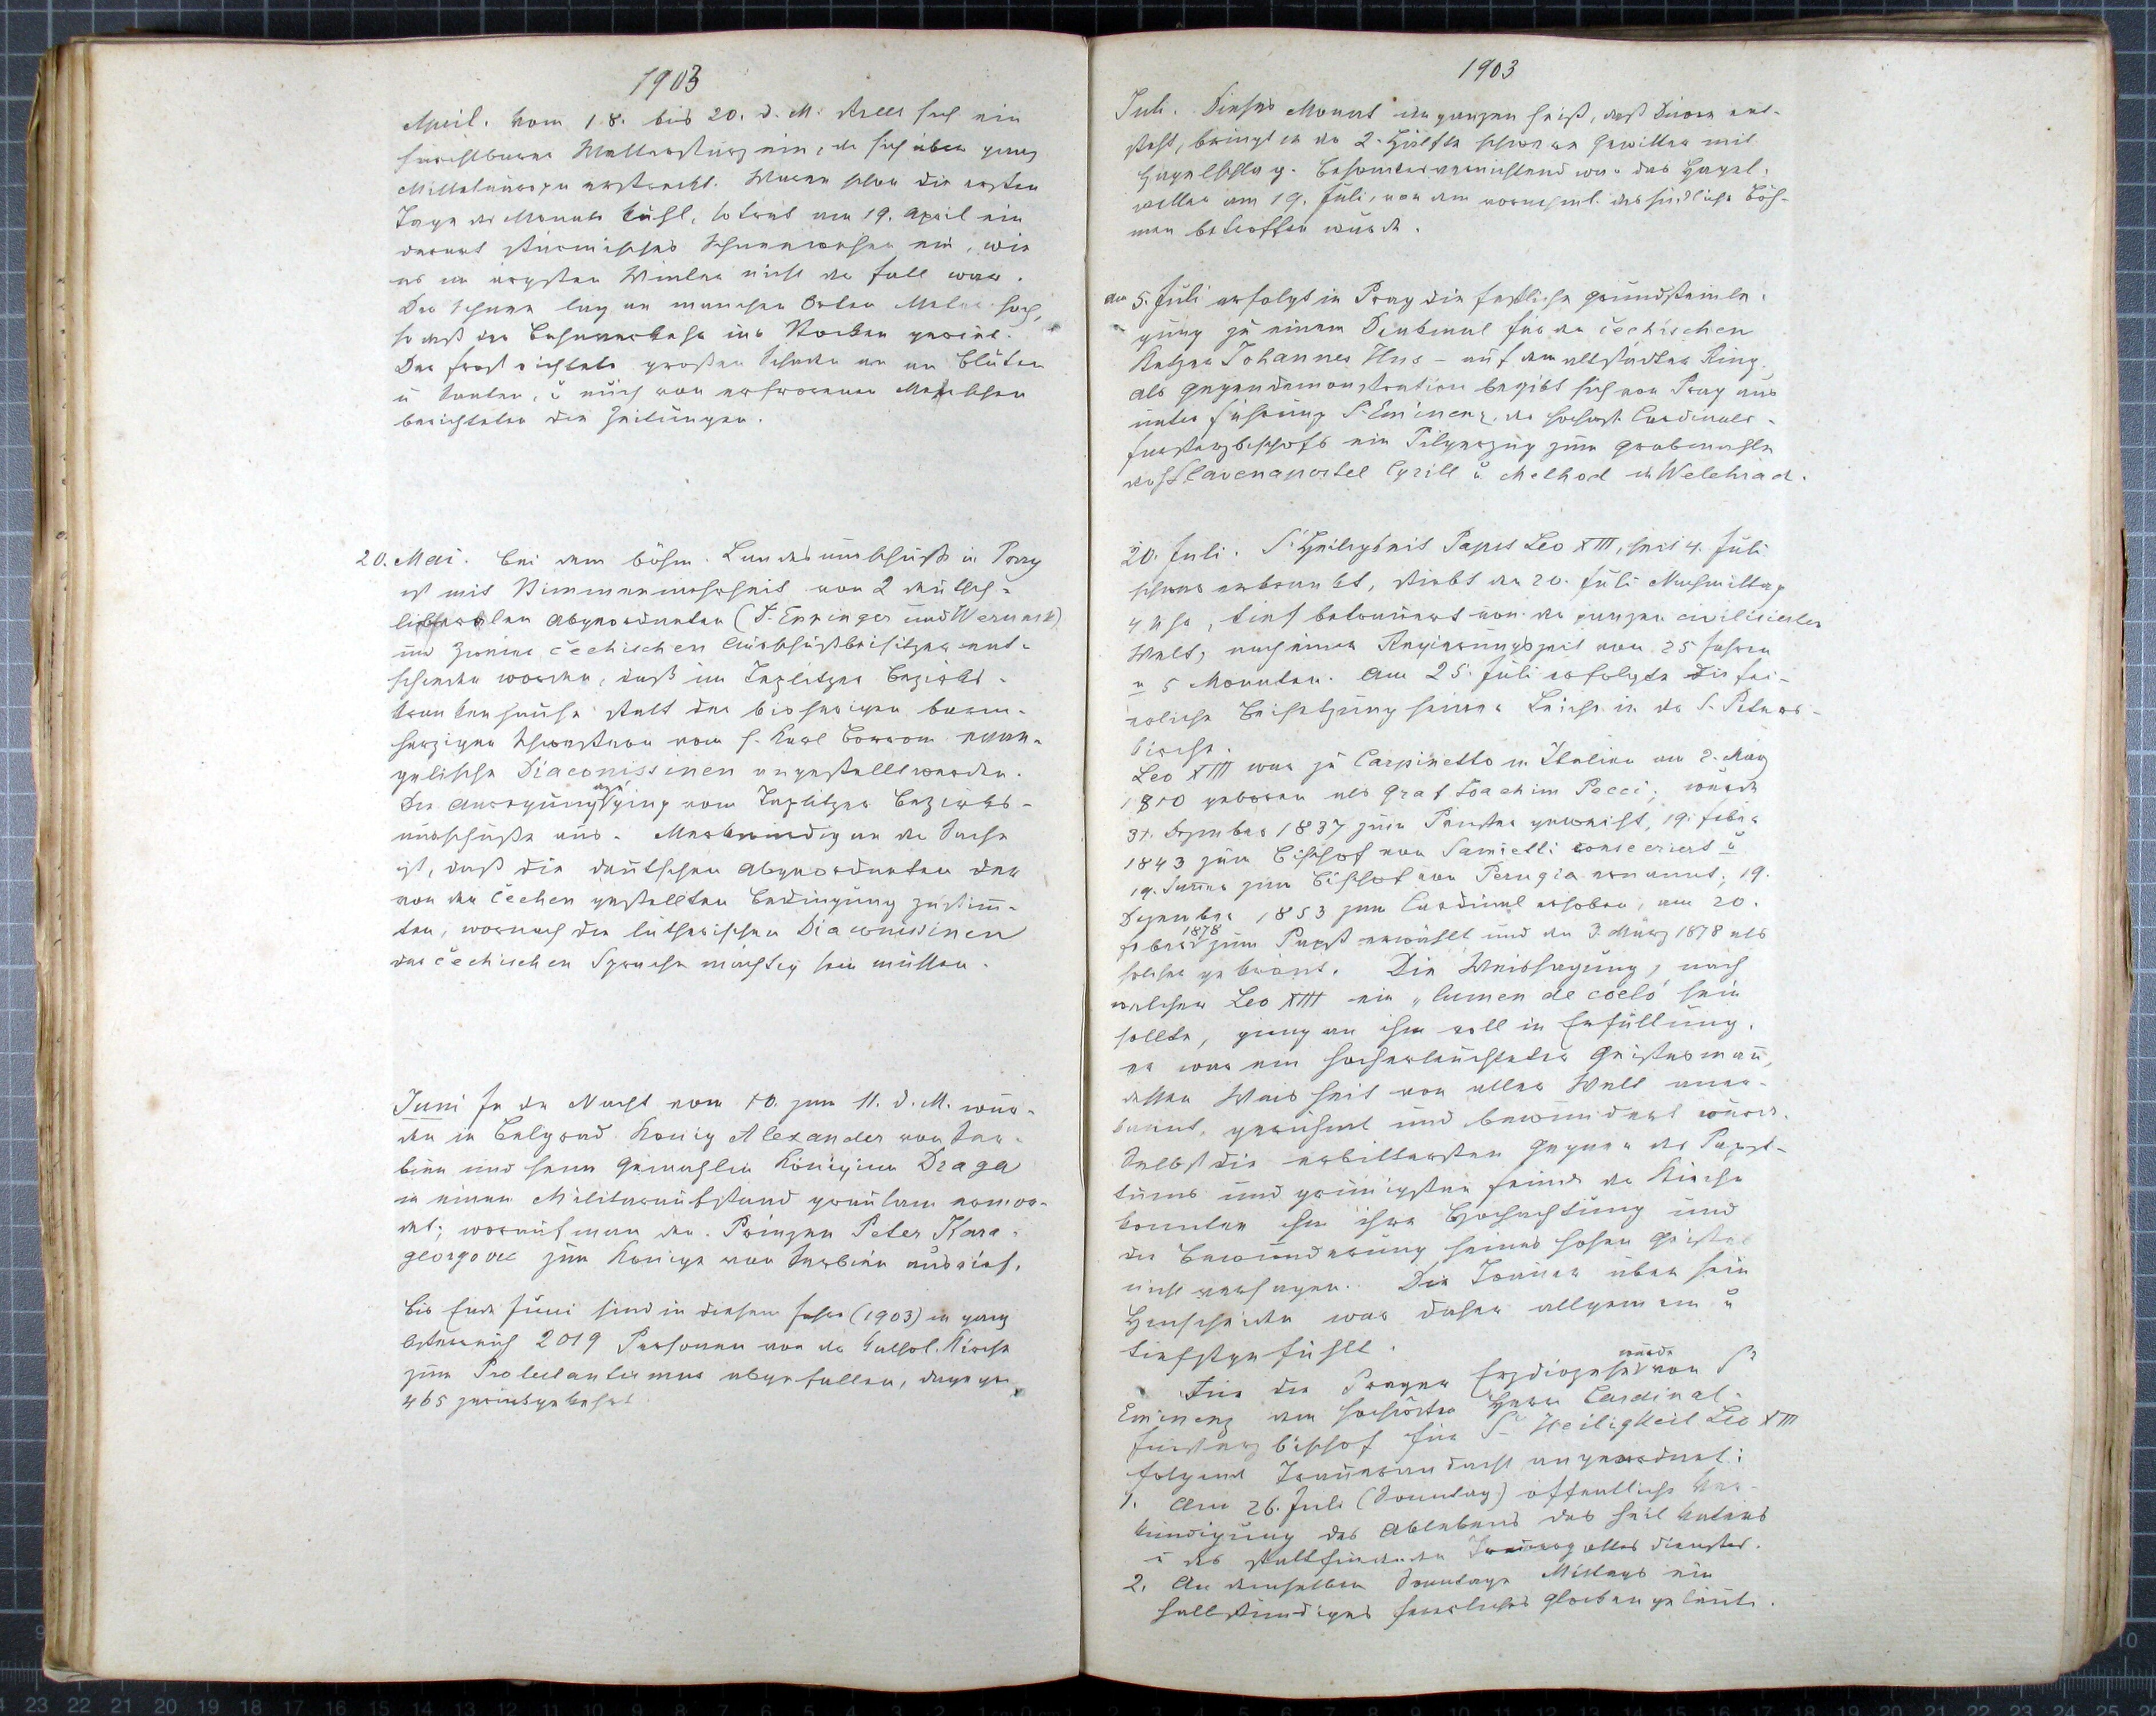 1903
April. Vom 18. bis 20. d. M. stellt sich ein
furchtbarer Wettersturz ein, der sich über ganz
Mitteleuropa erstreckt. Waren schon die ersten
Tage des Monats kühl, so trat am 19. April ein
derart stürmisches Schneewehen ein, wie
es im ärgsten Winter nicht der Fall war.
Der Schnee lag an manchen Orten Meter hoch,
so daß der Bahnverkehr ins Stocken geriet.
Der Frost richtete großen Schaden an an Blüten
u Saaten, u auch von erfrorenen Menschen
berichteten die Zeitungen.
20. Mai. Bei dem böhm. Landesausschuß in Prag
ist mit Stimmenmehrheit von 2 deutsch-
liberalen Abgeordneten (D. Eppinger und Werunsk)
und zweier čechischen Ausschußbeisitzer ent-
schieden worden, daß im Teplitzer Bezirks-
krankenhause statt der bisherigen barm-
herzigen Schwestern vom h. Karl Borrom. evan-
gelische Diaconissinen angestellt werden.
Die Anregung dazu ging vom Teplitzer Bezirks-
ausschuße aus. Merkwürdig an der Sache
ist, daß die deutschen Abgeordneten der
von den Čechen gestellten Bedingung zustim̄-
ten, wornach die lutherischen Diaconissinen
der čechischen Sprache mächtig sein müssen.
Juni In der Nacht vom 10. zum 11. d. M. wur-
den in Belgrad König Alexander von Ser-
bien und seine Gemahlin Königin Draga
in einem Militäraufstand grausam ermor-
det; worauf man den Prinzen Peter Kara-
georgović zum Könige von Serbien ausrief.
Bis Ende Juni sind in diesem Jahre (1903) in ganz
Österreich 2019 Personen von der kathol. Kirche
zum Protestantismus abgefallen, dagegen
465 zurückgekehrt.
1903
Juli. Dieser Monat im ganzen heiß, daß Dürre ent-
steht, bringt in der 2. Hälfte schwere Gewitter mit
Hagelschlag. Besonders vernichtend war das Hagel-
wetter am 19. Juli, von dem vornehml. das südliche Böh-
men betroffen wurde.
Am 5. Juli erfolgt in Prag die festliche Grundsteinle-
gung zu einem Denkmal für den čechischen
Ketzer Johannes Hus – auf dem altstädter Ring.
Als Gegendemonstration begibt sich von Prag aus
unter Führung Sr Eminenz des hochwst. Cardinals-
Fürsterzbischofs ein Pilgerzug zum Grabmahle
der Slavenapostel Cyrill u Method in Welehrad.
20. Juli. Sr Heiligkeit Papst Leo XIII, seit 4. Juli
schwer erkrankt, stirbt den 20. Juli Nachmittag
4 Uhr, tief betrauert von der ganzen civilisierten
Welt, nach einer Regierungszeit von 25 Jahren
u 5 Monaten. Am 25. Juli erfolgte die fei-
erliche Beisetzung seiner Leiche in der S. Peters-
kirche.
Leo XIII war zu Carpinetto in Italien am 2. März
1810 geboren als Graf Joachim Pecci; wurde
31. Dezember 1837 zum Priester geweiht, 19. Febr.
1843 zum Bischof von Damietti consecriert u
19. Jänner zum Bischof von Perugia ernannt; 19.
Dezember 1853 zum Cardinal erhoben, am 20.
Feber 1878 zum Papst erwählt und den 3. März 1878 als
solcher gekrönt. Die Weissagung, nach
welcher Leo XIII ein „lumen de coelo“ sein
sollte, ging an ihm voll in Erfüllung.
er war ein hocherleuchteter Geistesman̄,
dessen Weisheit von aller Welt aner-
kannt, gerühmt und bewundert wurde.
Selbst die erbittersten Gegner des Papst-
tums und grimmigsten Feinde der Kirche
konnten ihm ihre Hochachtung und
die Bewunderung seines hohen Geistes
nicht versagen. Die Trauer über sein
Hinscheiden war daher allgemein u
tiefstgefühlt.
Für die Prager Erzdiözese wurde von Sr
Eminenz dem hochwürdsten Herrn Cardinal-
Fürsterzbischof für Sr Heiligkeit Leo XIII
folgende Trauerandacht angeordnet:
1. Am 26. Juli (Sonntag) öffentliche Ver-
kündigung des Ablebens des heil Vaters
u des stattfindenden Trauergottesdienstes.
2. An demselben Sonntage Mittags ein
halbstündiges feierliches Glockengeläute.